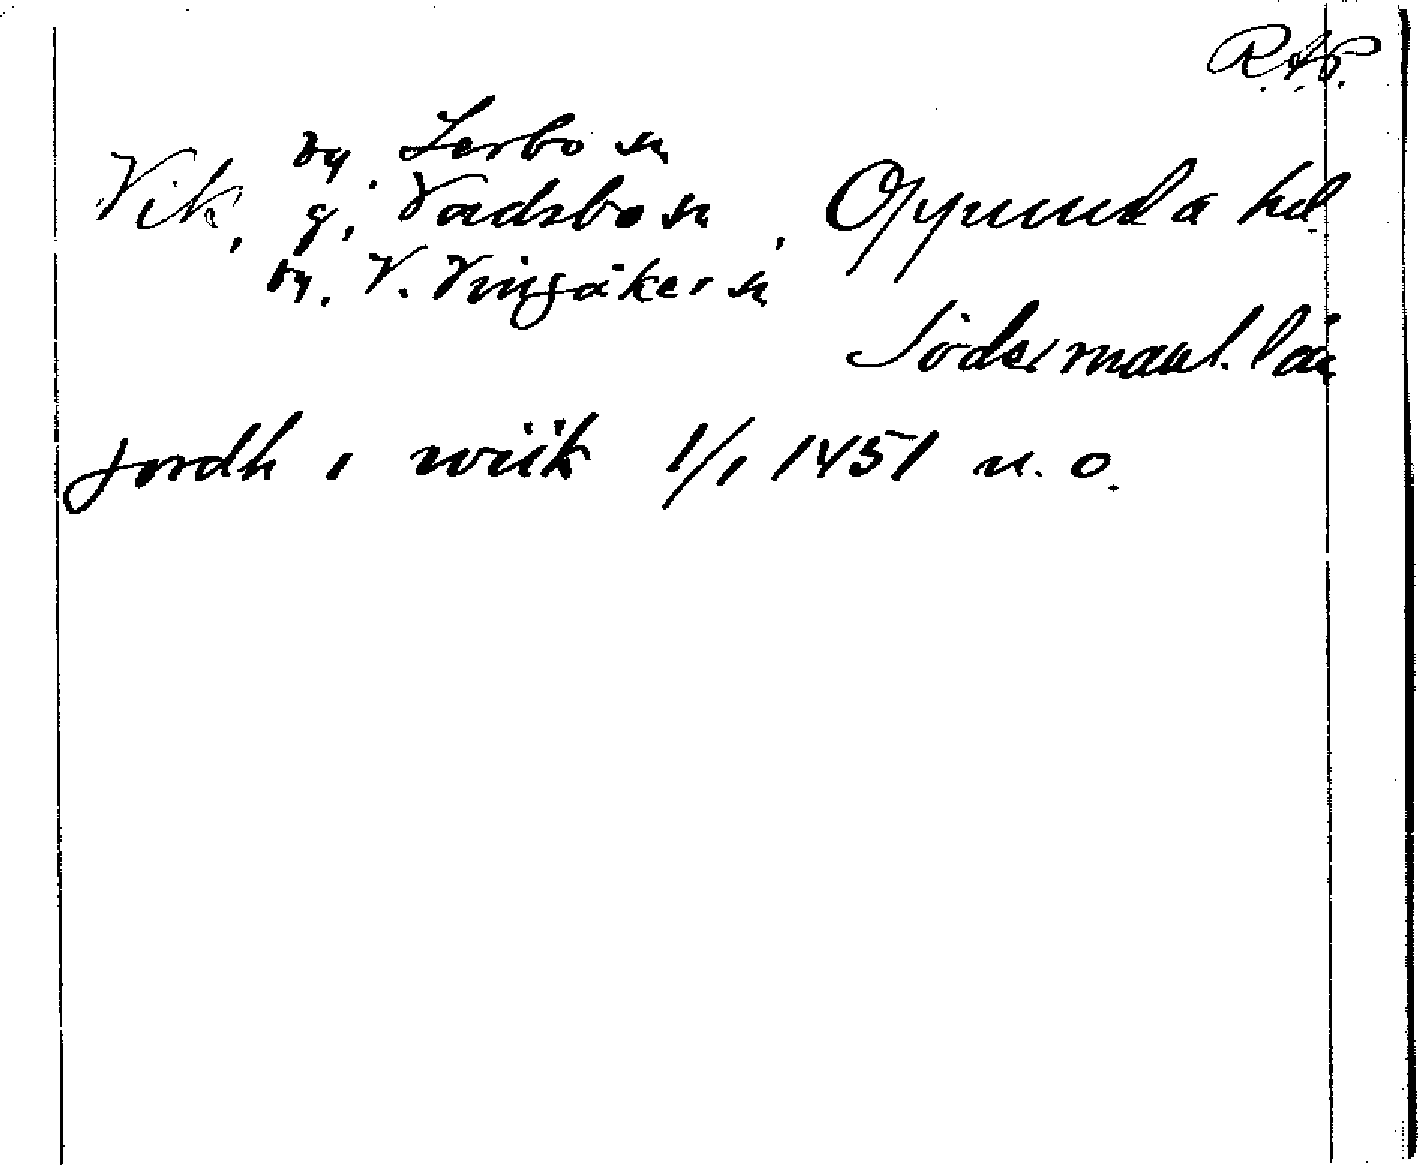 R.A.P.
by, Lerbo sn
Vik, g, Vadsbo sn, Oppunda hd
by, V. Vingåker sn
Södermanl. län
jordh i wiik 1/1 1451 n. o.